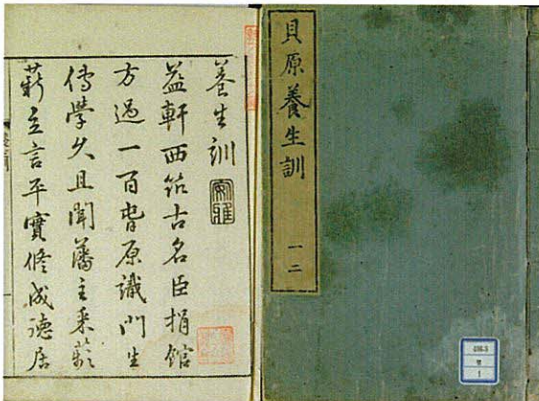 貝原養生訓
一二
養生訓
益軒西筑古名臣捐館
方過一百原識門生
傳學久且聞藩主采
立言平實修成德居